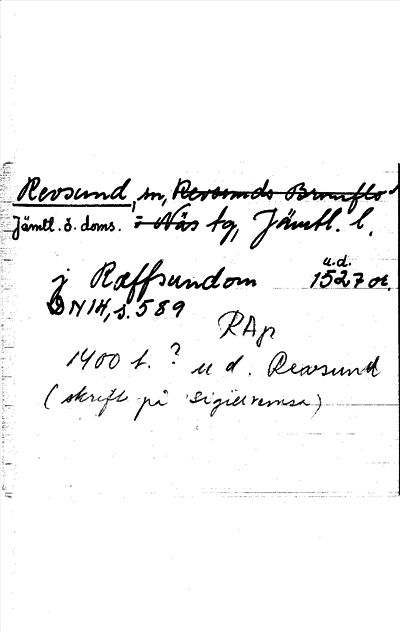 Revsund, sn, Revsunds Brunflo
Jämtl. ö. doms. o Näs tg, Jämtl. l.
j Ræffsundom u.d. 1527 or.
DN 14, s. 589
RAp
1400 t. ? u d. Revsund
(skrift på sigillremsa)